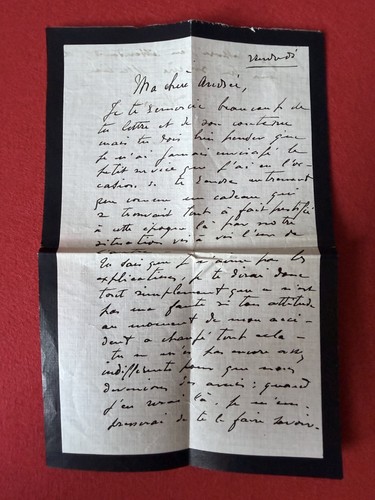 Vendredi
Ma chère Andrée,
Je te remercie beaucoup de
ta lettre et de son contenu
mais tu dois bien penser que
je n'ai jamais envisagé le
petit service que j'ai eu l'oc-
casion de te rendre autrement
que comme un cadeau qui
se trouvait tout à fait justifié
à cette époque là par notre
situation vis à vis l'un de
Tu sais que je n'aime pas les
explications, je te dirai donc
tout simplement que ce n'est
pas ma faute si ton attitude
au moment de mon acci-
dent a changé tout cela -
tu ne m'es pas encore assez
indifférente pour que nous
devenions des amis: quand
j'en serai là je m'em-
presserai de te le faire savoir.